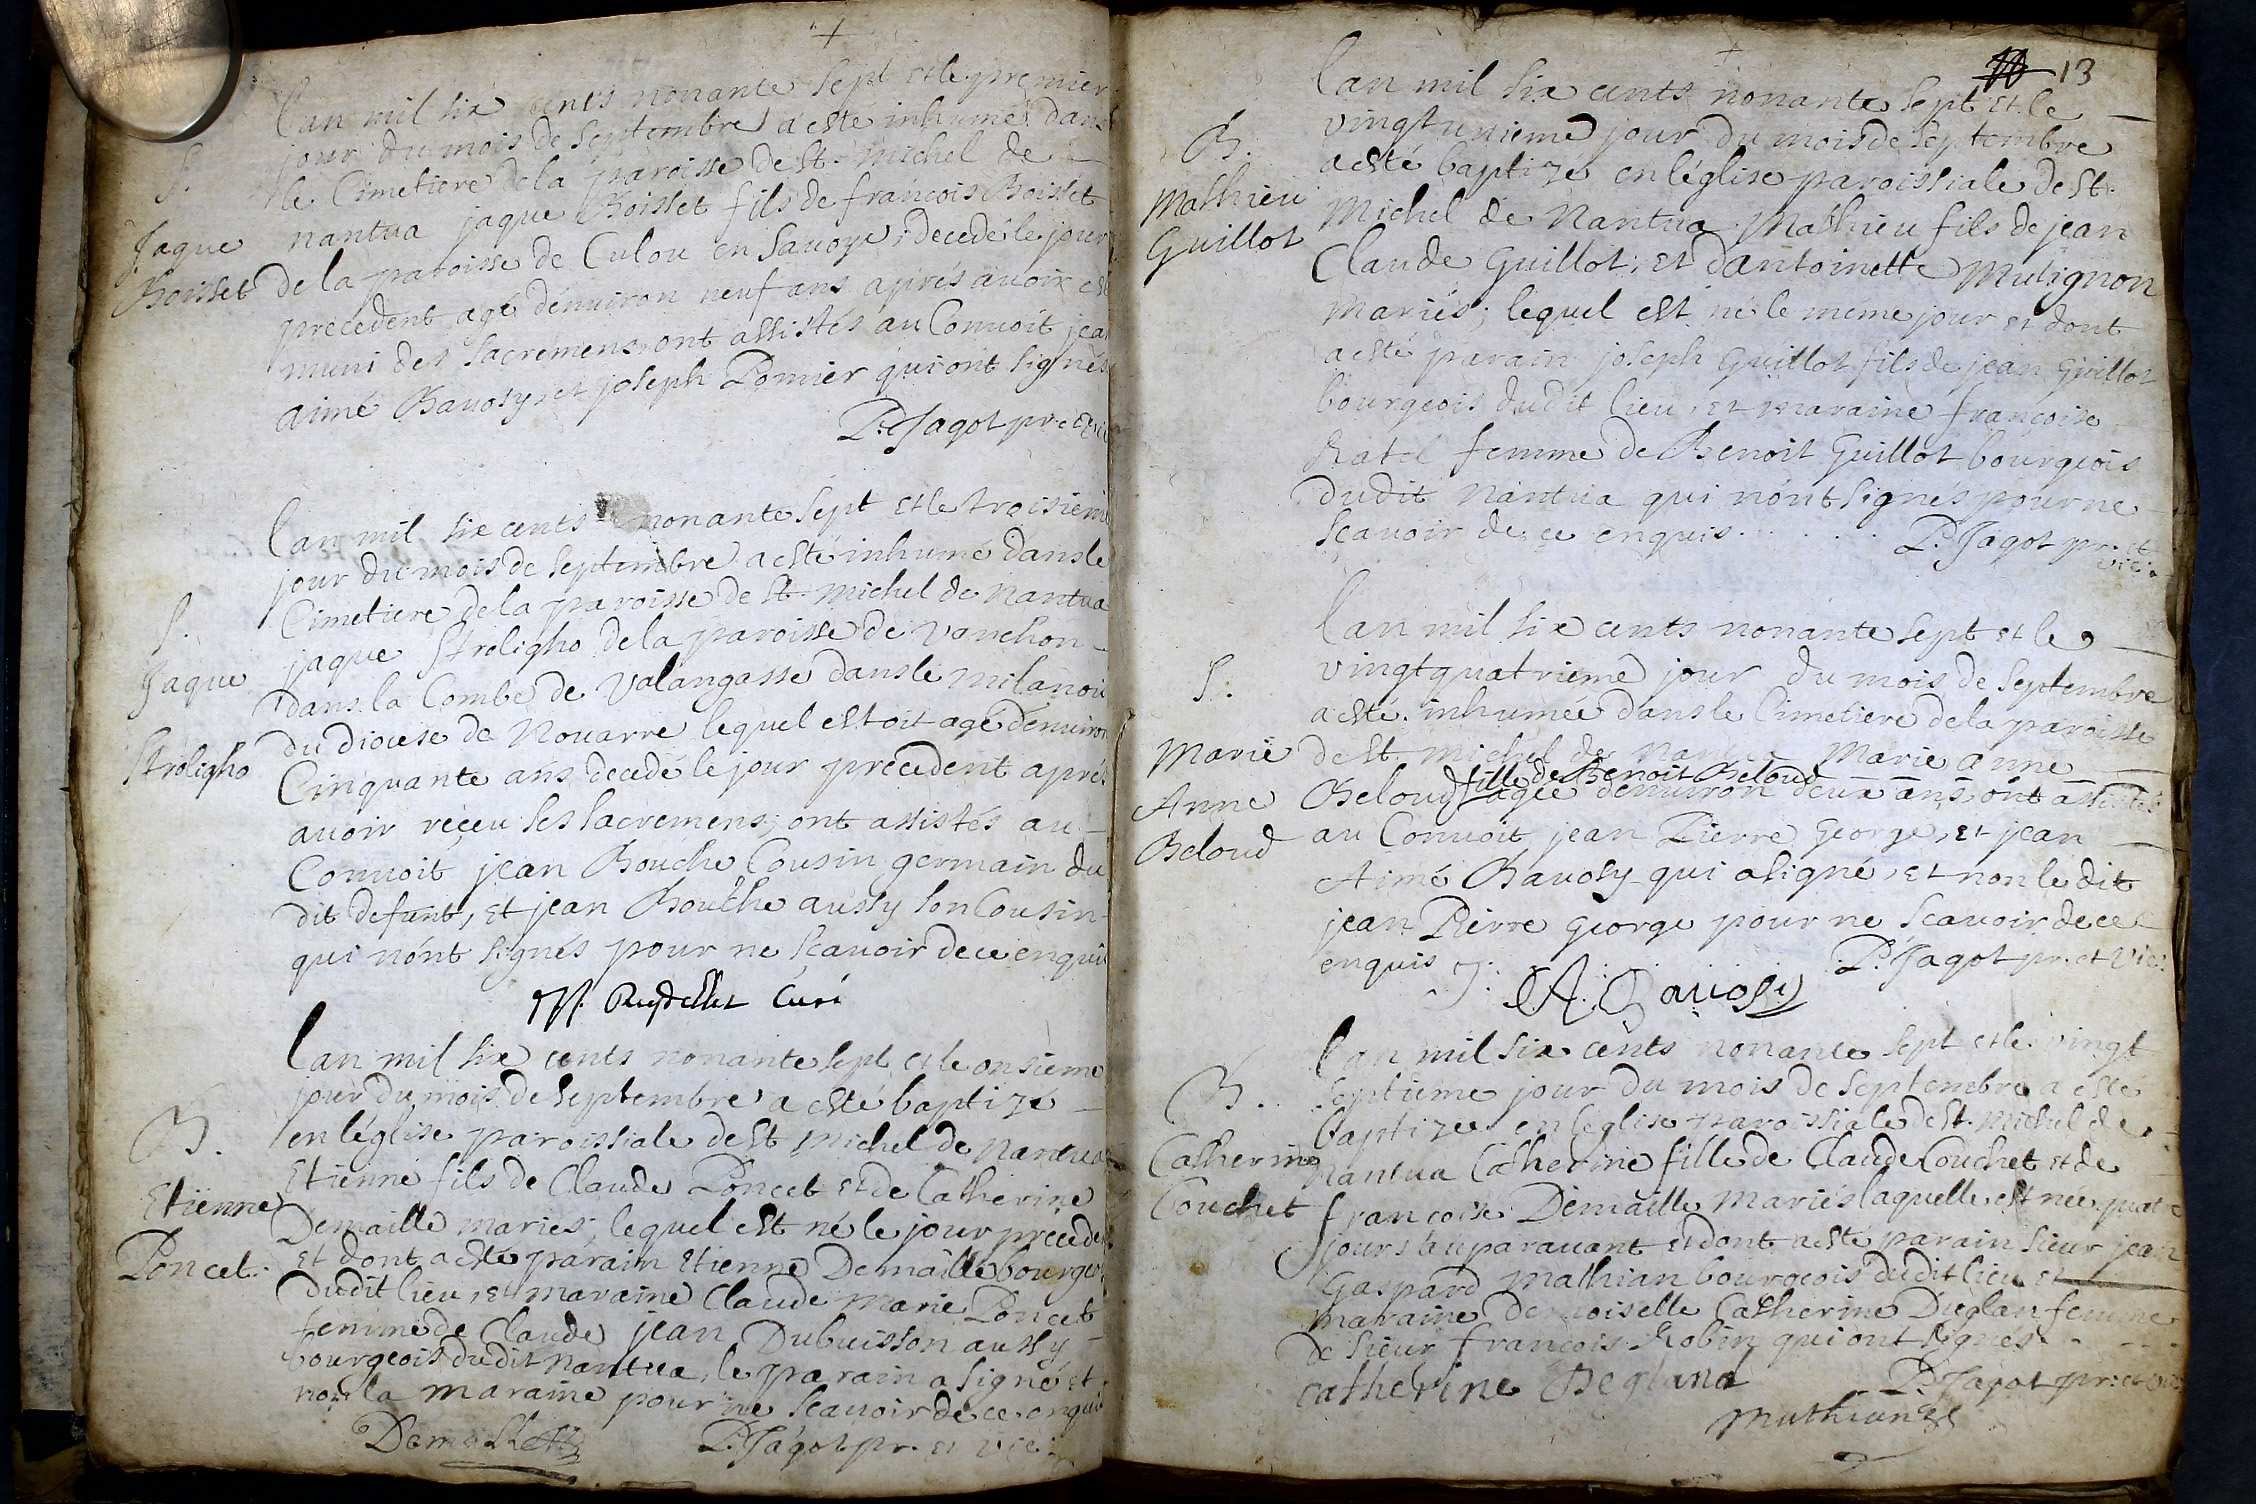 Lan mil six cents nonante sept et le premier
jour du mois de septembre a esté inhumé dans
le Cimetiere de la paroisse de St. Michel de
S.
nantua jaque Boisset fils de francois Boisset
Jaque
Boisset
de la paroisse de Culou en Savoye, decedé le jour
precedent agé dénuiron neuf ans aprés auoir esté
muni des sacremens, ont assistés au Conuoit jean
aimé Bauosy, et joseph Pomier qui ont signés
P. Jagot pr. et vic
Lan mil six cents nonante sept et le troisieme
jour du mois de septembre a esté inhumé dans le
Cimetiere de la paroisse de St. Michel de Nantua
S.
Jaque
Stroligho
jaque Stroligho de la paroisse de Vanchon
dans la Combe de Valangasse dans le Milanois
du diocese de Nouarre lequel estoit agé denuiron
Cinquante ans decedé le jour precedent aprés
auoir reçeu ses sacremens; ont assistés au
Conuoit jean Bouche Cousin germain du
dit defunt, et jean Bouthe aussy son Cousin
qui nónt signés pour ne scauoir de ce enquis
Curé
Lan mil six cents nonante sept et le onsieme
jour du mois de septembre a esté baptizé
en léglise paroissiale de St Michel de Nantua
B.
Etienne
Poncet.
Etienne fils de Claude Poncet et de Catherine
Demaille mariés; lequel est né le jour precedent
et dont a esté parain Etienne Demaille bourgeois
dudit lieu, et maraine Claude Marie Poncet
femme de Claude jean Dubuisson aussy
bourgeois dudit Nantua, le parain a signé et
non la maraine pour ne scauoir de ce enquis
P. Jagot pr. et vic.
13
Lan mil six cents nonante sept et le
vingtunieme jour du mois de septembre
a esté baptizé en léglise paroissiale de St.
B.
Mathieu
Guillot
Michel de Nantua Mathieu fils de jean
Claude Guillot, et dantoinette Mutignon
Mariés; lequel est né le méme jour et dont
a esté parain joseph Guillot fils de jean Guillot
bourgeois dudit lieu, et maraine françoise
Ratel femme de Benoit Guillot bourgeois
dudit Nantua qui nónt signés pour ne
scauoir de ce enquis . . . . . . P. Jagot pr. et
vic.
Lan mil six cents nonante sept et le
vingtquatrieme jour du mois de septembre
a esté inhumée dans le Cimetiere de la paroisse
S.
Marie
Anne
Beloud
de St. Michel de Nantua Marie anne
fille de Benoit Beloud
Beloud agée denuiron deux ans, ont assistés
au Conuoit jean Pierre George, et jean
Aimé Bauosy qui a signé, et non le dit
jean Pierre George pour ne scauoir de ce
enquis P. Jagot pr. et vic.
J. A. Bauosy
Lan mil six cents nonante sept et le vingt
septieme jour du mois de septembre a esté
baptizée en léglise paroissiale de St. Michel de
B.
Catherine
Couchet
Nantua Catherine fille de Claude Couchet et de
francoise Demaille mariés laquelle est née quatre
jours auparauant et dont a esté parain sieur jean
Gaspard Mathian bourgeois dudit lieu et
maraine demoiselle Catherine Deglan femme
de sieur francois Robin qui ont signés
Catherine Degland P. Jagot pr. et vic
Mathian